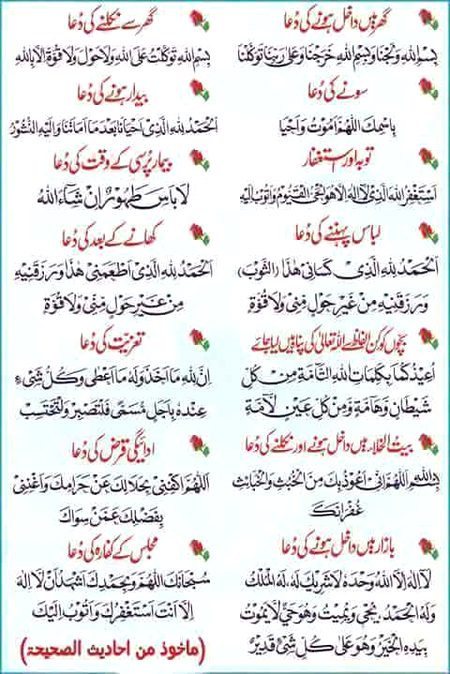 گھر میں داخل ہونے کی دُعا
بِسْمِ اللهِ وَلَجْنَا وَبِسْمِ اللهِ خَرَجْنَا وَعَلٰى رَبِّنَا تَوَكَّلْنَا
سونے کی دُعا
بِاسْمِكَ اللّٰهُمَّ اَمُوْتُ وَاَحْيَا
توبہ اور استغفار
اَسْتَغْفِرُ اللهَ الَّذِيْ لَا اِلٰهَ اِلَّا هُوَ الْحَيُّ الْقَيُّوْمُ وَاَتُوْبُ اِلَيْهِ
لباس پہننے کی دُعا
اَلْحَمْدُ لِلّٰهِ الَّذِيْ كَسَانِيْ هٰذَا (الثَّوْبَ)
وَرَزَقَنِيْهِ مِنْ غَيْرِ حَوْلٍ مِّنِّيْ وَلَا قُوَّةٍ
بچوں کو کن الفاظ سے اللہ تعالیٰ کی پناہ میں دیا جائے
اُعِيْذُكُمَا بِكَلِمَاتِ اللهِ التَّامَّةِ مِنْ كُلِّ
شَيْطَانٍ وَهَامَّةٍ وَّمِنْ كُلِّ عَيْنٍ لَامَّةٍ
بیت الخلاء میں داخل ہونے اور نکلنے کی دُعا
بِسْمِ اللهِ اَللّٰهُمَّ اِنِّيْ اَعُوْذُ بِكَ مِنَ الْخُبُثِ وَالْخَبَائِثِ
غُفْرَانَكَ
بازار میں داخل ہونے کی دُعا
لَا اِلٰهَ اِلَّا اللهُ وَحْدَهٗ لَا شَرِيْكَ لَهٗ، لَهُ الْمُلْكُ
وَلَهُ الْحَمْدُ يُحْيِيْ وَيُمِيْتُ وَهُوَ حَيٌّ لَا يَمُوْتُ
بِيَدِهِ الْخَيْرُ وَهُوَ عَلٰى كُلِّ شَيْءٍ قَدِيْرٌ
گھر سے نکلنے کی دُعا
بِسْمِ اللهِ تَوَكَّلْتُ عَلَى اللهِ وَلَا حَوْلَ وَلَا قُوَّةَ اِلَّا بِاللهِ
بیدار ہونے کی دُعا
اَلْحَمْدُ لِلّٰهِ الَّذِيْ اَحْيَانَا بَعْدَ مَا اَمَاتَنَا وَاِلَيْهِ النُّشُوْرُ
بیمار پُرسی کے وقت کی دُعا
لَا بَاْسَ طَهُوْرٌ اِنْ شَاءَ اللهُ
کھانے کے بعد کی دُعا
اَلْحَمْدُ لِلّٰهِ الَّذِيْ اَطْعَمَنِيْ هٰذَا وَرَزَقَنِيْهِ
مِنْ غَيْرِ حَوْلٍ مِّنِّيْ وَلَا قُوَّةٍ
تعزیت کی دُعا
اِنَّ لِلّٰهِ مَا اَخَذَ وَلَهٗ مَا اَعْطٰى وَكُلُّ شَيْءٍ
عِنْدَهٗ بِاَجَلٍ مُّسَمًّى فَلْتَصْبِرْ وَلْتَحْتَسِبْ
ادائیگی قرض کی دُعا
اَللّٰهُمَّ اكْفِنِيْ بِحَلَالِكَ عَنْ حَرَامِكَ وَاَغْنِنِيْ
بِفَضْلِكَ عَمَّنْ سِوَاكَ
مجلس کے کفارہ کی دُعا
سُبْحَانَكَ اللّٰهُمَّ وَبِحَمْدِكَ اَشْهَدُ اَنْ لَا اِلٰهَ
اِلَّا اَنْتَ اَسْتَغْفِرُكَ وَاَتُوْبُ اِلَيْكَ
(ماخوذ من احادیث الصحیحة)